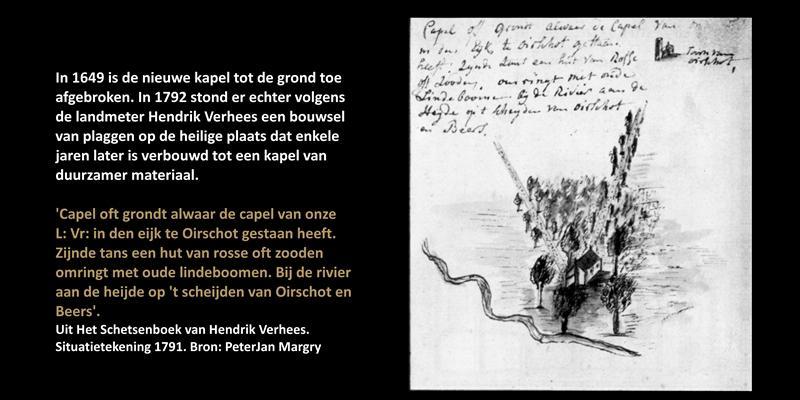 In 1649 is de nieuwe kapel tot de grond toe
afgebroken. In 1792 stond er echter volgens
de landmeter Hendrik Verhees een bouwsel
van plaggen op de heilige plaats dat enkele
jaren later is verbouwd tot een kapel van
duurzamer materiaal.
'Capel oft grondt alwaar de capel van onze
L: Vr: in den eijk te Oirschot gestaan heeft.
Zijnde tans een hut van rosse oft zooden
omringt met oude lindeboomen. Bij de rivier
aan de heijde op 't scheijden van Oirschot en
Beers'.
Uit Het Schetsenboek van Hendrik Verhees.
Situatietekening 1791. Bron: PeterJan Margry
Capel oft Grondt alwaer de Capel van
in den Eijk te Oirschot gestaen
heeft. Zijnde tans een hut van Rosse
oft Zooden, omringt met oude
Linde boomen bij de Rivier aen de
Heyde op't scheyden van Oirschot
en Beers.
Toren van
Oirschot